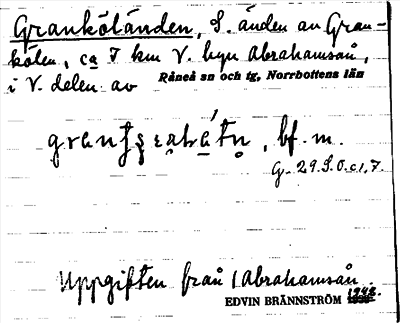 Grankölånden, S. änden av Gran-
kölen, ca 7 km V. byn Abrahamsån,
i V. delen av Råneå sn och tg, Norrbottens län
bf. m.
G. 29.S.O.c.1.7.
Uppgiften från Abrahamsån
EDVIN BRÄNNSTRÖM 1942.